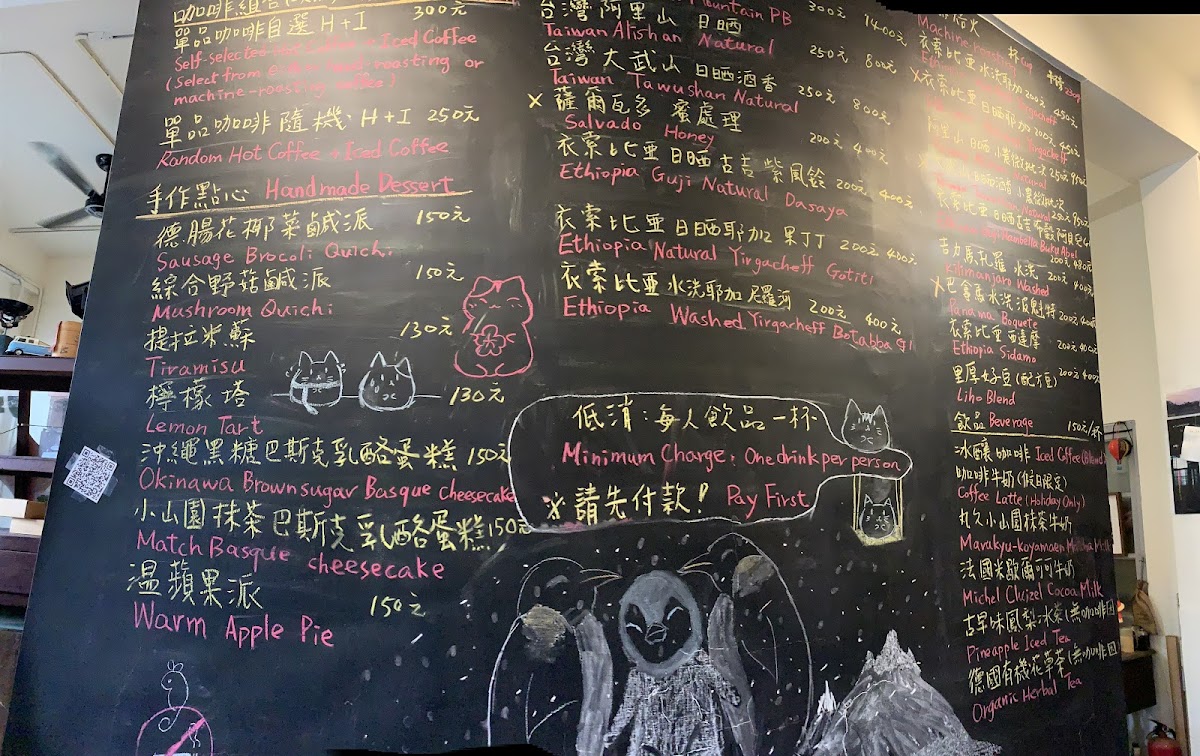 單品咖啡自選 H+I 300元
Self-selected Hot Coffee + Iced Coffee
(Select from hand-roasting or
machine-roasting coffee)
單品咖啡隨機 H+I 250元
Random Hot Coffee + Iced Coffee
手作點心 Handmade Dessert
德腸花椰菜鹹派 150元
Sausage Brocoli Quichi
綜合野菇鹹派 150元
Mushroom Quichi
提拉米蘇 130元
Tiramisu
檸檬塔 130元
Lemon Tart
沖繩黑糖巴斯克乳酪蛋糕 150元
Okinawa Brown sugar Basque cheesecake
小山園抹茶巴斯克乳酪蛋糕 150元
Match Basque cheesecake
溫蘋果派 150元
Warm Apple Pie
Mountain PB 300元 1400元
台灣阿里山 日晒
Taiwan Alishan Natural 250元 800元
台灣大武山 日晒酒香 250元 800元
Taiwan Tawushan Natural
X 薩爾瓦多 蜜處理 200元 400元
Salvado Honey
衣索比亞 日晒古吉 紫風鈴 200元 400元
Ethiopia Guji Natural Dasaya
衣索比亞 日晒耶加 果丁丁 200元 400元
Ethiopia Natural Yirgacheff Gotiti
衣索比亞 水洗耶加 尼羅河 200元 400元
Ethiopia Washed Yirgacheff Botabba G1
低消:每人飲品一杯
Minimum Charge: One drink per person
※請先付款! Pay First
Machine roasting 杯 cup
衣索比亞水洗耶加 200元 450元
X 衣索比亞日晒耶加 200元 450元
Yirgacheff
阿里山日晒 250元
Natural
Natural 250元 950元
衣索比亞日晒古吉
Hambella Buku Abel
吉力馬札羅 水洗 200元 400元
Kilimanjaro Washed
X 巴拿馬水洗波魁特 200元 400元
Panama Boquete
衣索比亞西達摩 200元 400元
Ethiopia Sidamo
里厚好豆(配方豆) 200元 400元
Liho Blend
飲品 Beverage 150元/杯
冰釀咖啡 Iced Coffee (Blend)
咖啡牛奶(假日限定)
Coffee Latte (Holiday Only)
丸久小山園抹茶牛奶
Marukyu-koyamaen Matcha Milk
法國米歇爾可可牛奶
Michel Cluizel Cocoa Milk
古早味鳳梨冰茶(無咖啡因
Pineapple Iced Tea
德國有機花草茶(無咖啡因
Organic Herbal Tea